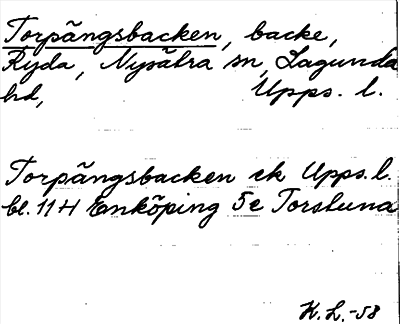 Torpängsbacken, backe,
Ryda, Nysätra sn, Lagunda
hd, Upps. l.
Torpängsbacken ek Upps. l.
bl. 11 H Enköping 5e Torstuna
H.L. -58